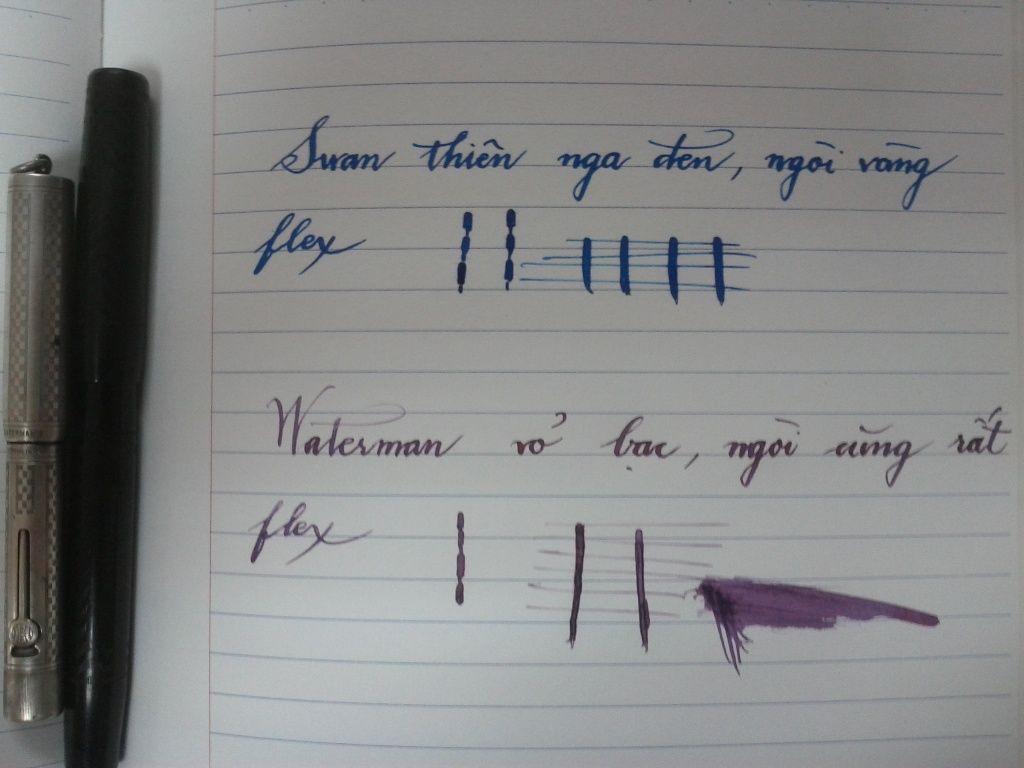 Swan thiên nga đen, ngòi vàng
flex
Waterman vỏ bạc, ngòi cũng rất
flex